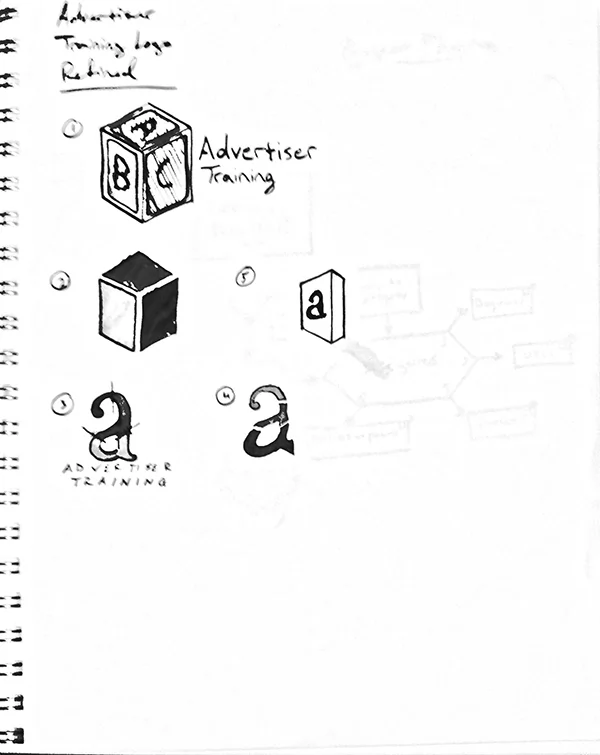 Advertiser
Training Logo
Refined
1
B C
Advertiser
Training
2
5
a
3
a
ADVERTISER
TRAINING
4
a